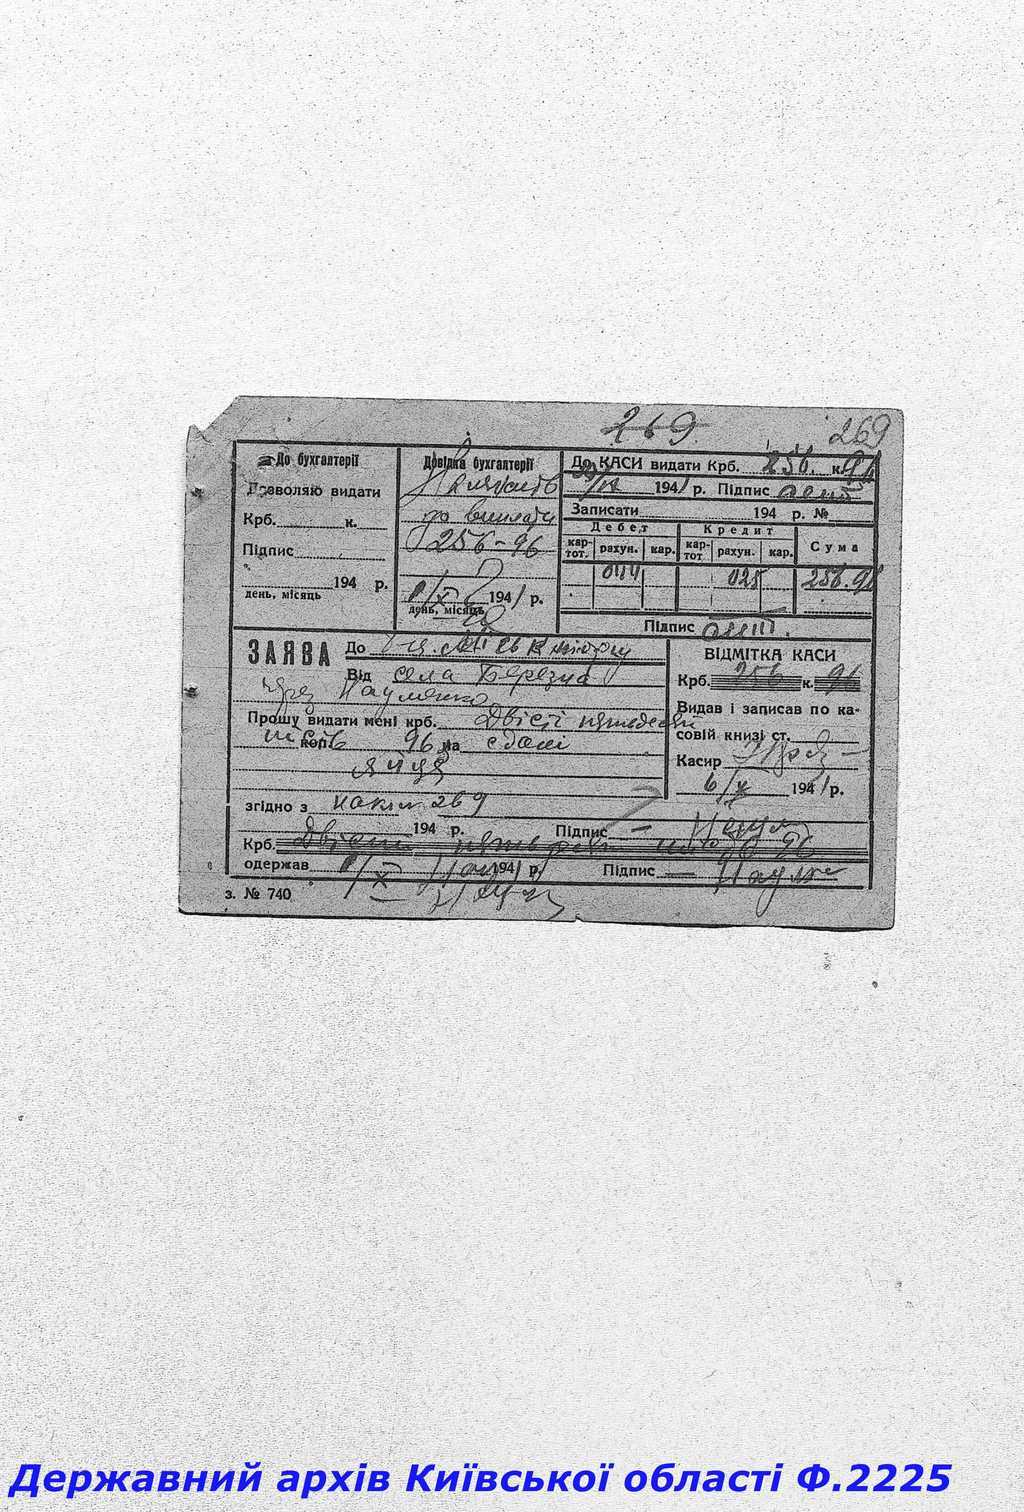 269 269
До бухгалтерії
Дозволяю видати
Крб. к.
Підпис
194 р.
день, місяць
Довідка бухгалтерії
до виплати
256-96
1/X 1941 р.
день, місяць
До КАСИ видати Крб. 256. к. 96
1941 р. Підпис
Записати 194 р. №
Дебет Кредит Сума
кар-тот. рахун. кар. кар-тот рахун. кар.
025 256.96
Підпис
ЗАЯВА До
Від села Березна
через Науменко
Прошу видати мені крб. Двісті пятьдесят
шість коп. 96 на здані
яйця
згідно з накл. 269
194 р. Підпис
Крб. Двісті пятьдесят шість 96
одержав 1/X 1941 р. Підпис
з. № 740
ВІДМІТКА КАСИ
Крб. 256 к. 96
Видав і записав по ка-
совій книзі ст.
Касир
6/X 1941 р.
Державний архів Київської області Ф.2225